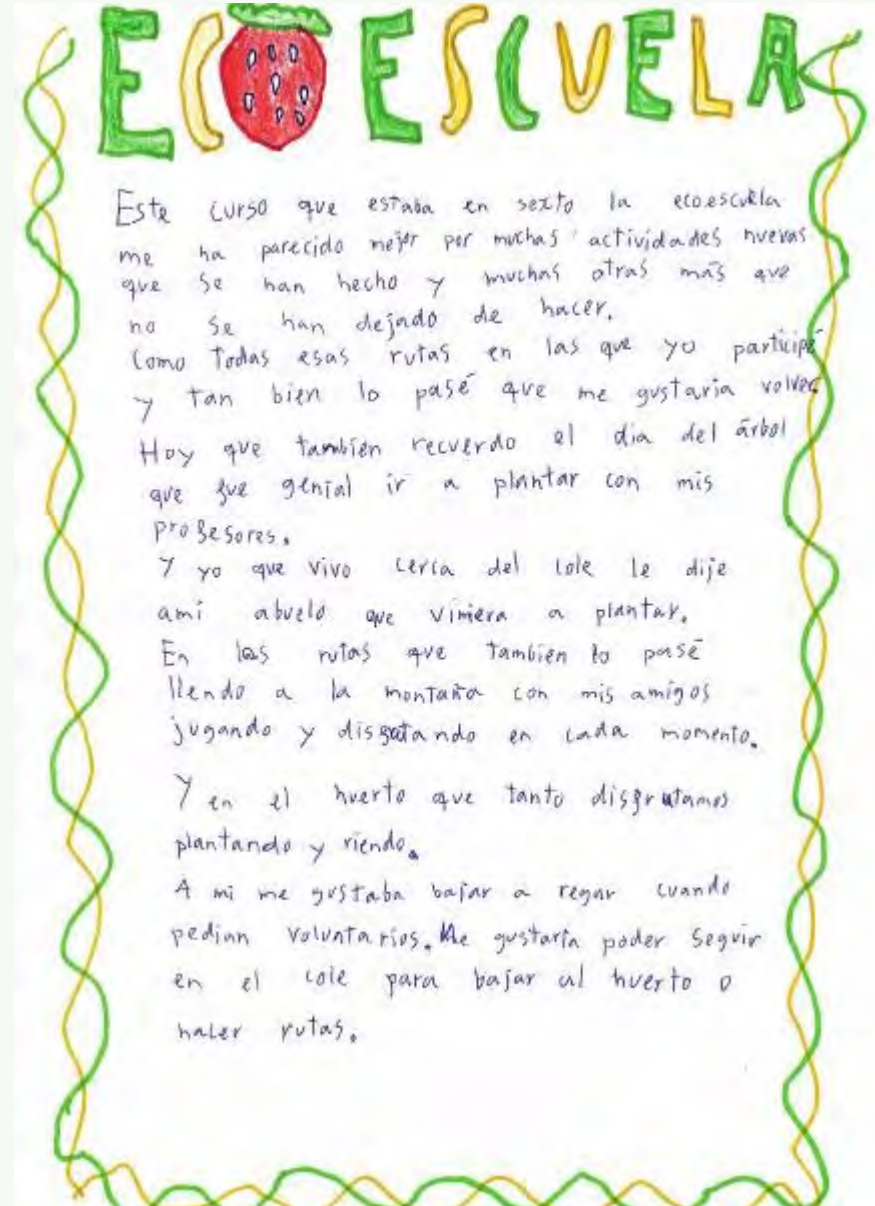 ECOESCUELA
Este curso que estaba en sexto la ecoescuela
me ha parecido mejor por muchas actividades nuevas
que se han hecho y muchas otras más que
no se han dejado de hacer.
Como Todas esas rutas en las que yo participé
y tan bien lo pasé que me gustaria volver.
Hoy que también recuerdo el dia del árbol
que fue genial ir a plantar con mis
profesores.
Y yo que vivo cerca del cole le dije
ami abuelo que viniera a plantar.
En las rutas que también lo pasé
llendo a la montaña con mis amigos
jugando y disfrutando en cada momento.
Y en el huerto que tanto disfrutamos
plantando y riendo.
A mi me gustaba bajar a regar cuando
pedian voluntarios. Me gustaría poder seguir
en el cole para bajar al huerto o
hacer rutas.